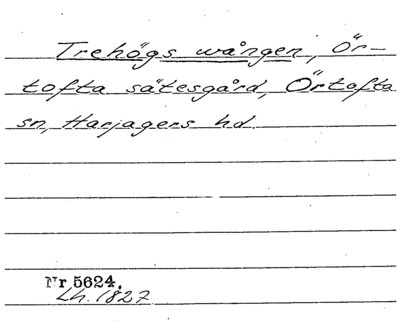 Trehögs wången, Ör-
tofta sätesgård, Örtofta
sn, Harjagers hd.
Nr 5624.
Lh. 1827